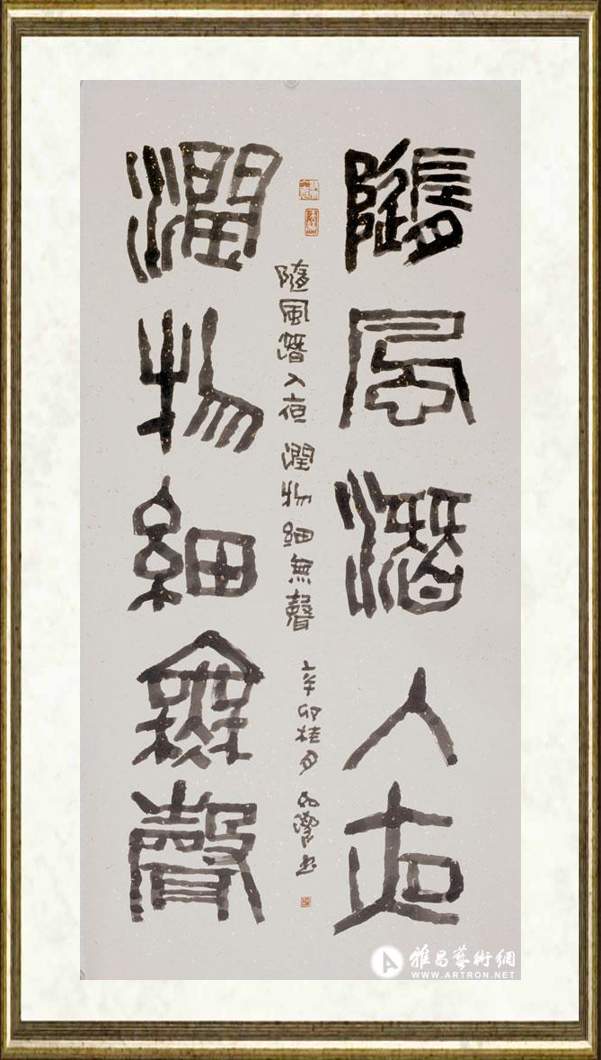 隨風潛入夜
潤物細無聲
隨風潛入夜 潤物細無聲 辛卯桂月
雅昌藝術網
WWW.ARTRON.NET